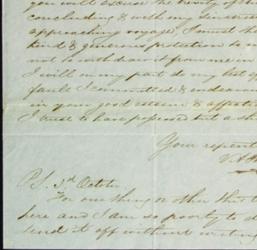 you will excuse the brevity of th
concluding & with my sincerest
approaching voyage, I must th
kind & generous protection to m
not to withdraw it from me in
I will on my part do my best
fault I committed & endeavou
in your good esteem & affecti
I trust to have proposed but a sh
Your repent
P.S. 3rd October
For one thing or other this
here and I am so poorly to d
send it off without writing